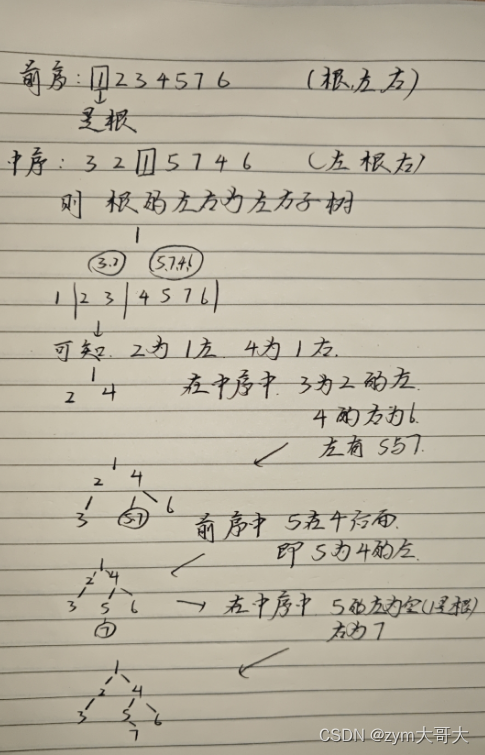 前序: 1 2 3 4 5 7 6 (根,左,右)
是根
中序: 3 2 1 5 7 4 6 (左 根 右)
则 根的左右为左右子树
1
3.2 5.7.4.6
1 | 2 3 | 4 5 7 6 |
可知. 2为1左. 4为1右.
1
2 4
在中序中 3为2的左.
4的右为6.
左有5与7.
1
2 4
3 5.7 6
前序中 5在4后面.
即5为4的左.
1
2 4
3 5 6
7
在中序中 5的左为空(1是根)
右为7
1
2 4
3 5 6
7
CSDN @zym大哥大